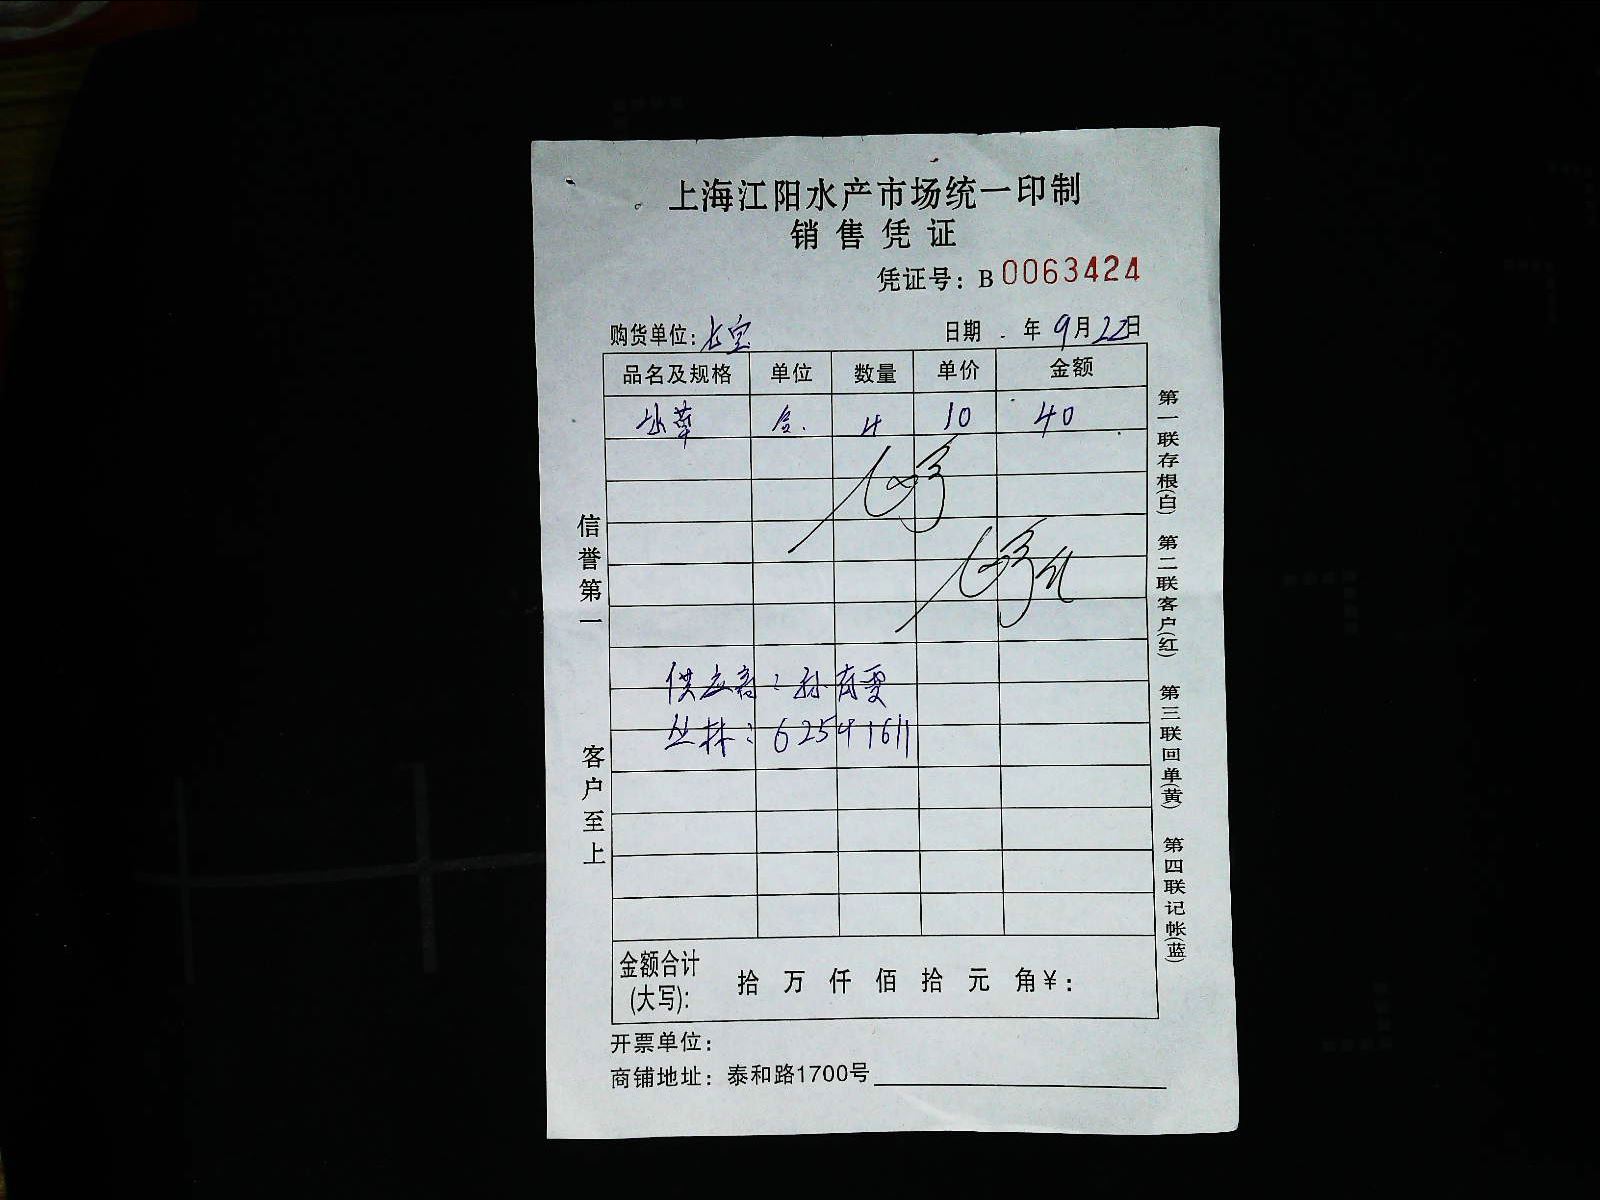 上海江阳水产市场统一印制
销售凭证
凭证号：B 0063424
购货单位：长宝 日期 年 9月22日
品名及规格 单位 数量 单价 金额
4 10 40
供应商：孙存雯
丛林：62541611
金额合计(大写)： 拾 万 仟 佰 拾 元 角 ¥：
开票单位：
商铺地址：泰和路1700号
信誉第一
客户至上
第一联存根(白) 第二联客户(红) 第三联回单(黄) 第四联记帐(蓝)